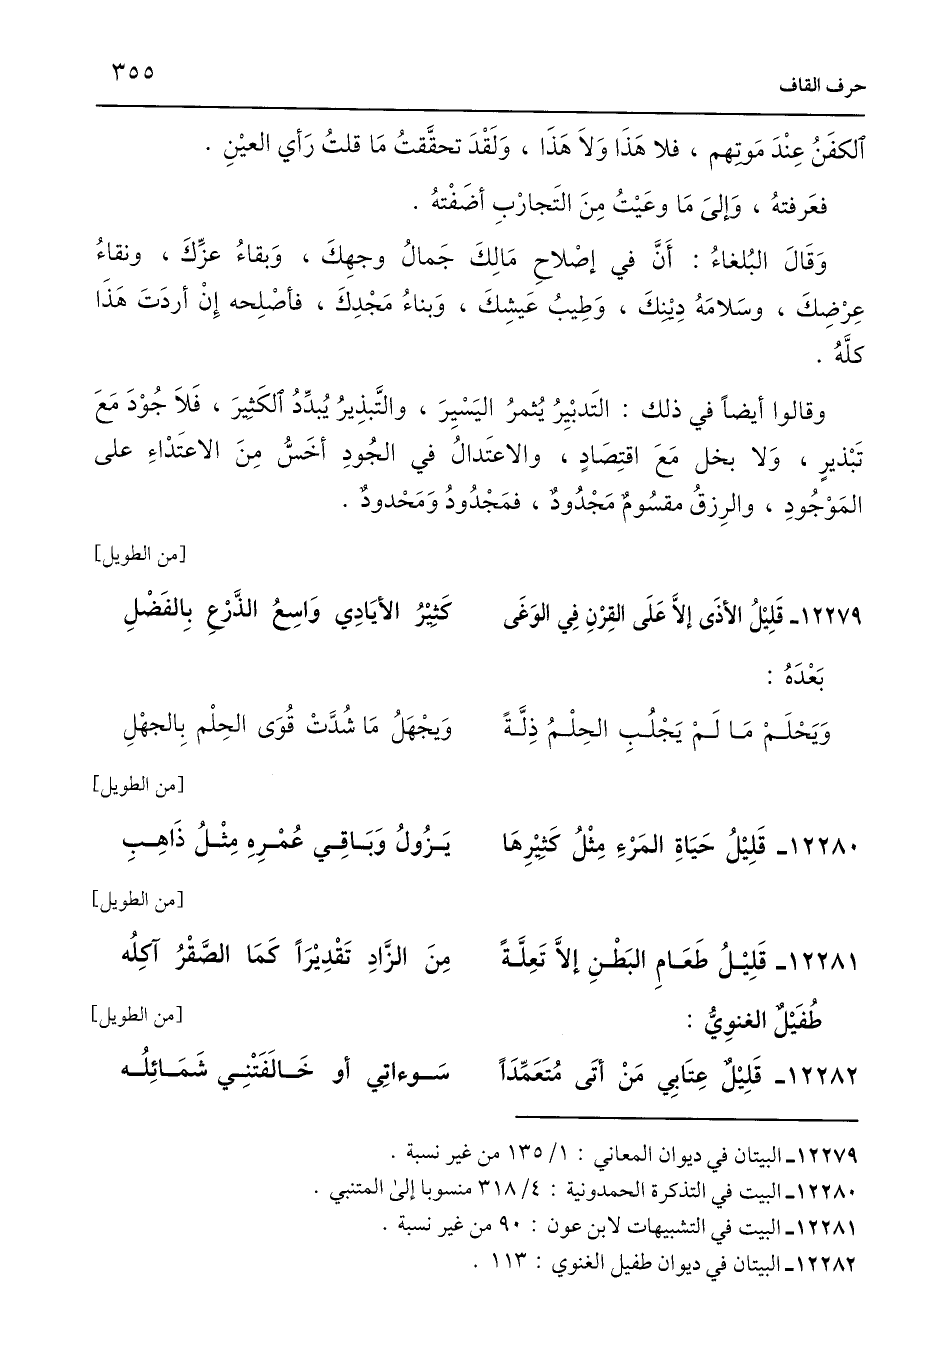 حرف القاف ٣٥٥
ٱلكفَنُ عِنْدَ مَوتِهم ، فلا هَذَا وَلاَ هَذَا ، وَلَقْدَ تحقَّقتُ مَا قلتُ رَأي العيْنِ .
فعَرفتهُ ، وَإلىَ مَا وعَيْتُ مِنَ التَجارْبِ أضَفْتهُ .
وَقَالَ البُلغاءُ : أنَّ في إصْلاحِ مَالِكَ جَمالُ وجهِكَ ، وَبقاءُ عزِّكَ ، ونقاءُ
عِرْضِكَ ، وسَلامَهُ دِيْنِكَ ، وَطِيبُ عَيشِكَ ، وَبناءُ مَجْدِكَ ، فأصْلِحه إنْ أردَتَ هَذَا
كلَّهُ .
وقالوا أيضاً في ذلك : التَدبْيُر يُثمرُ اليَسْيرَ ، والتَّبذِيرُ يُبدِّدُ ٱلكَثِيرَ ، فَلاَ جُوْدَ مَعَ
تَبْذيرٍ ، وَلا بخل مَعَ اقتِصَادٍ ، والاعتِدالُ في الجُودِ أخَسُّ مِنَ الاعتذْاءِ على
المَوْجُودِ ، والرِزقُ مقسُومٌ مَجْدُودٌ ، فمَجْدُودُ وَمَحْدودٌ .
[من الطويل]
١٢٢٧٩ـ قَلِيْلُ الأذَى إلاَّ عَلَى القِرْنِ فِي الوَغَى كَثِيْرُ الأيَادِي وَاسِعُ الذَّرْعِ بِالفَضْلِ
بَعْدَهُ :
وَيَحْلَمْ مَا لَمْ يَجْلُبِ الحِلْمُ ذِلَّةً وَيجْهَلُ مَا شُدَّتْ قُوَى الحِلْمِ بِالجهْلِ
[من الطويل]
١٢٢٨٠ـ قَلِيْلُ حَيَاةِ المَرْءِ مِثْلُ كَثِيْرِهَا يَزُولُ وَبَاقِي عُمْرِهِ مِثْلُ ذَاهِبِ
[من الطويل]
١٢٢٨١ـ قَلِيْلُ طَعَامِ البَطْنِ إلاَّ تَعِلَّةً مِنَ الزَّادِ تَقْدِيْرَاً كَمَا الصَّقْرُ آكِلُه
طُفَيْلٌ الغنوِيُّ : [من الطويل]
١٢٢٨٢ـ قَلِيْلٌ عِتَابِي مَنْ أتَى مُتَعَمِّدَاً سَوءاتِي أو خَالَفَتْنِي شَمَائِلُه
١٢٢٧٩ـ البيتان في ديوان المعاني : ١/ ١٣٥ من غير نسبة .
١٢٢٨٠ـ البيت في التذكرة الحمدونية : ٤/ ٣١٨ منسوبا إلىٰ المتنبي .
١٢٢٨١ـ البيت في التشبيهات لابن عون : ٩٠ من غير نسبة .
١٢٢٨٢ـ البيتان في ديوان طفيل الغنوي : ١١٣ .